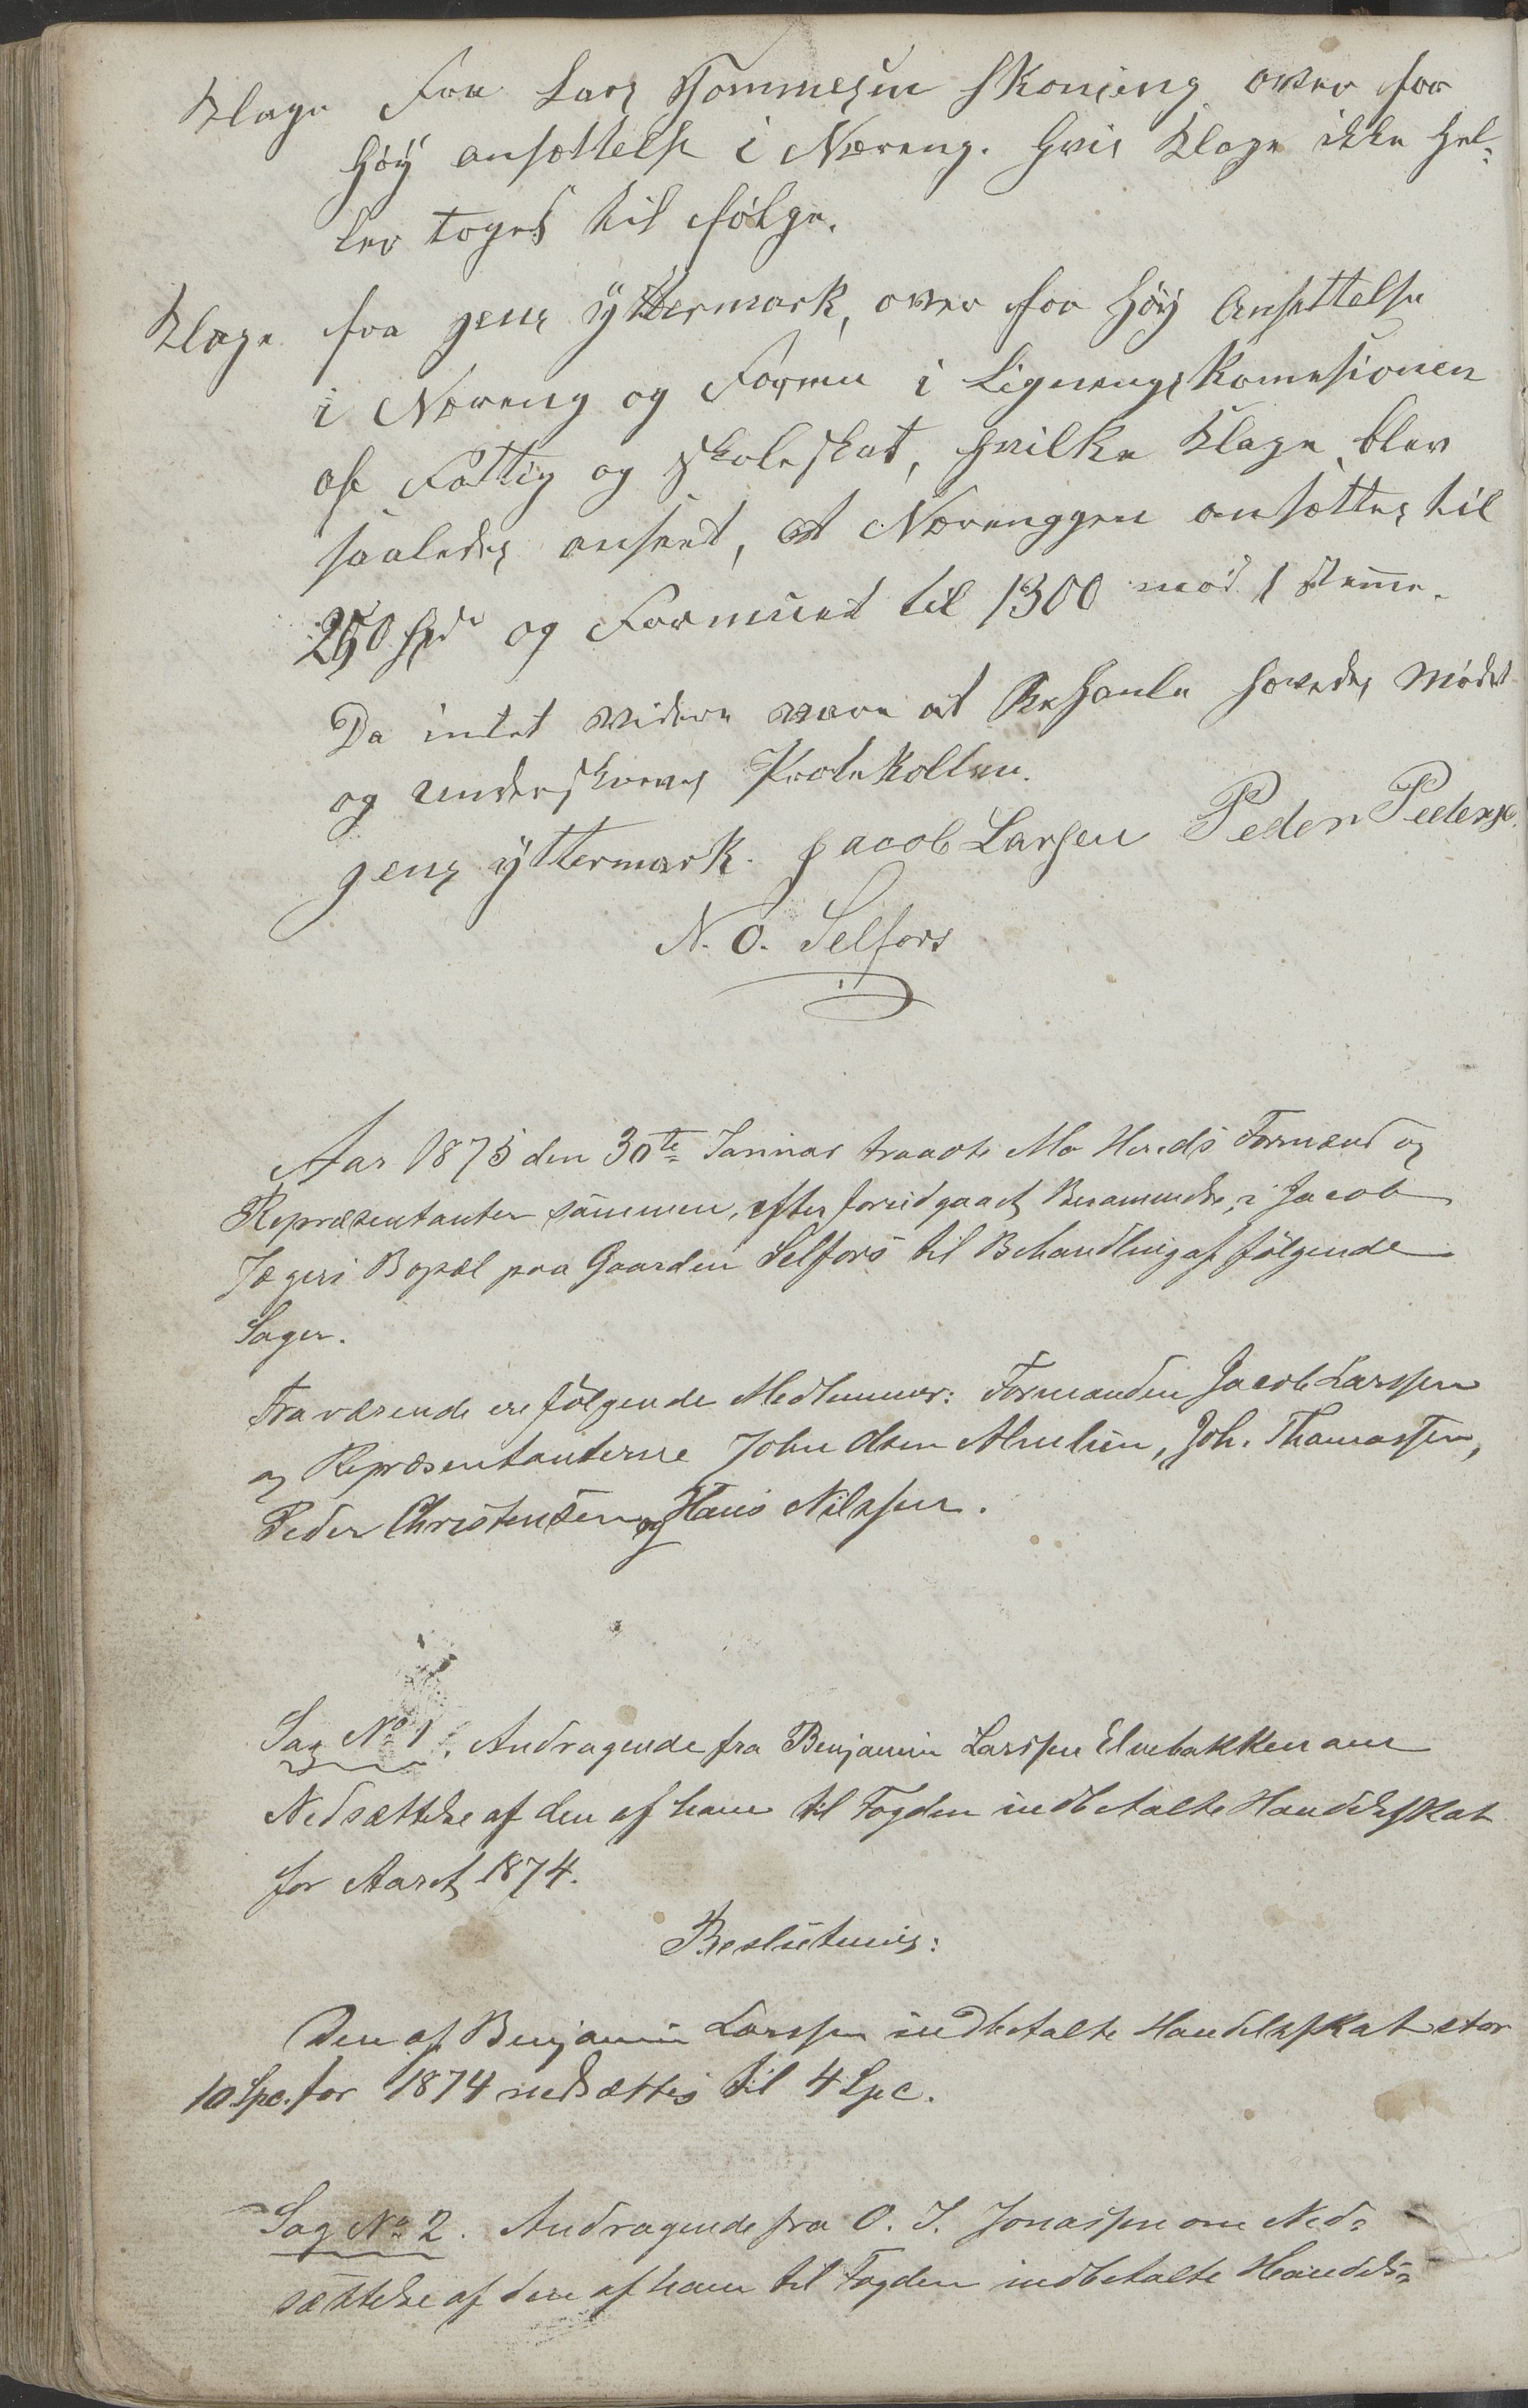 Klage Fra Lars Tommesen Skoning over for
høÿ ansættelse i Næreng. hvis Klage ikke hel-
ler toges til følge.
Klage fra jens ÿttermark, over for høÿ Ansettelse
i Næreng og Formu i Ligningskomesionen
af Fattig og skoleskat, hvilke Klage blev
saaledes anseet, at Nærenggen ansættes til
250 spd og Formuet til 1300 mod 1 stemme.
Da intet videre vare at Behanle hævedes mødet
og underskreves Protokollen.
jens ÿttermark. Jacob Larsen Peder Peders.
N. O. Selfors
Aar 1875 den 30te Januar traadte Mo Hereds Formænd og
Repræsentanter sammen, efter forudgaaet Berammelse, i Jacob
Jægers Bopæl paa Gaarden Selfors til Behandling af følgende
Sager.
Fraværende ere følgende Medlemmer: Formanden Jacob Larssen
og Repræsentanterne John Olsen Almlien, Joh. Thomassen,
Peder Christensen og Hans Nilssen.
Sag No 1. Andragende fra Benjamin Larssen Elvebakken om
Nedsættelse af den af ham til Fogden indbetalte Handelsskat
for Aaret 1874.
Beslutning:
Den af Benjamin Larssen indbetalte Handelsskat stor
10 Spc. for 1874 nedsættes til 4 Spc.
Sag No 2. Andragende fra O. J. Jonassen om Ned-
sættelse af den af ham til Fogden indbetalte Handels-